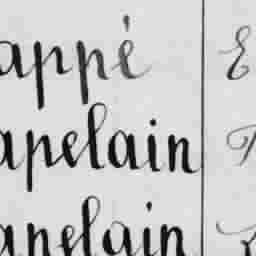 appé E
apelain
apelain